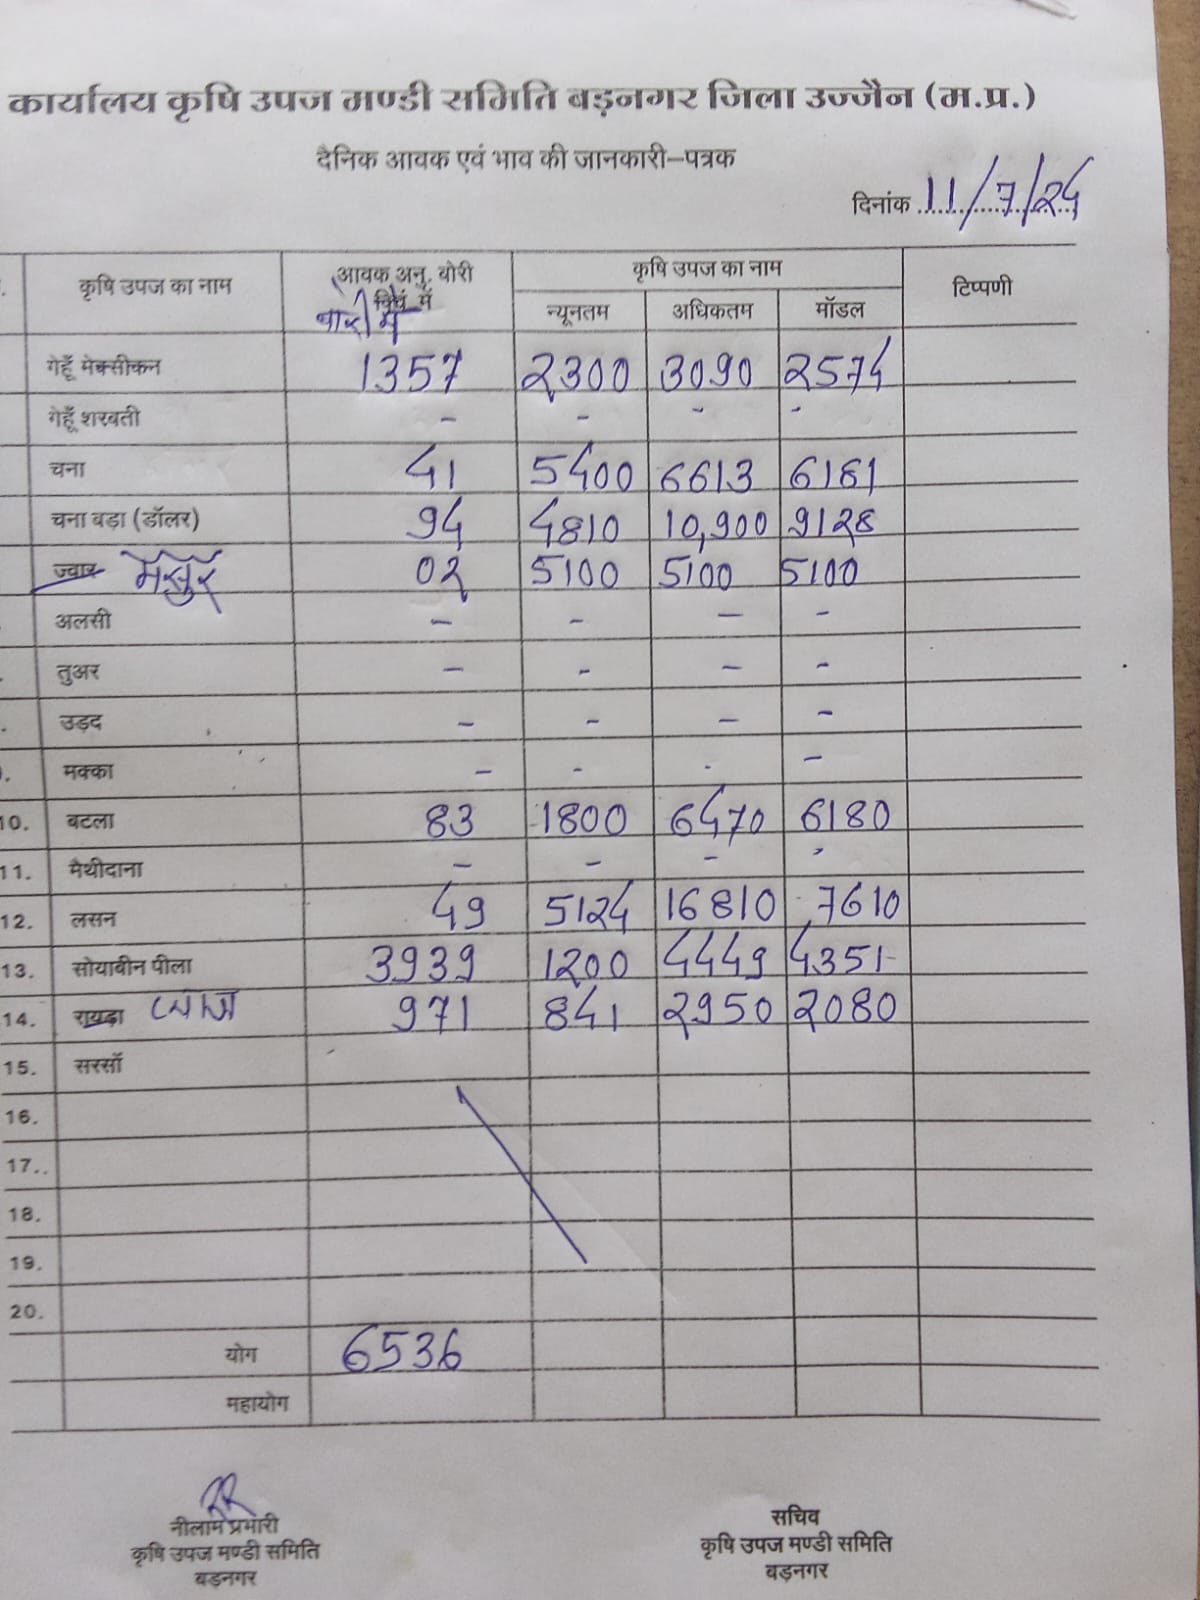 कार्यालय कृषि उपज मण्डी समिति बड़नगर जिला उज्जैन (म.प्र.)
दैनिक आवक एवं भाव की जानकारी–पत्रक
दिनांक 11/7/24
कृषि उपज का नाम आवक अनु. बोरी कृषि उपज का नाम टिप्पणी
में न्यूनतम अधिकतम मॉडल
गेहूँ मेक्सीकन 1357 2300 3090 2574
गेहूँ शरबती - - - -
चना 41 5400 6613 6181
चना बड़ा (डॉलर) 94 4810 10,900 9128
ज्वार मसुर 02 5100 5100 5100
अलसी - - - -
तुअर - - - -
उड़द - - - -
मक्का - - - -
10. बटला 83 1800 6470 6180
11. मैथीदाना - - - -
12. लसन 49 5124 16810 7610
13. सोयाबीन पीला 3939 1200 4449 4351
14. रायड़ा 971 841 2950 2080
15. सरसों
16.
17..
18.
19.
20.
योग 6536
महायोग
नीलाम प्रभारी
कृषि उपज मण्डी समिति
बड़नगर
सचिव
कृषि उपज मण्डी समिति
बड़नगर